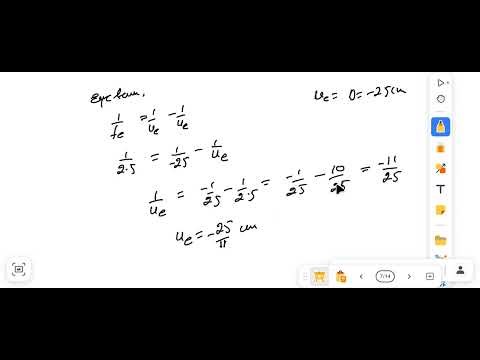 Eye lens. ve = D = -25cm
1/fe = 1/ve - 1/ue
1/2.5 = 1/-25 - 1/ue
1/ue = -1/25 - 1/2.5 = -1/25 - 10/25 = -11/25
ue = -25/11 cm
7/14